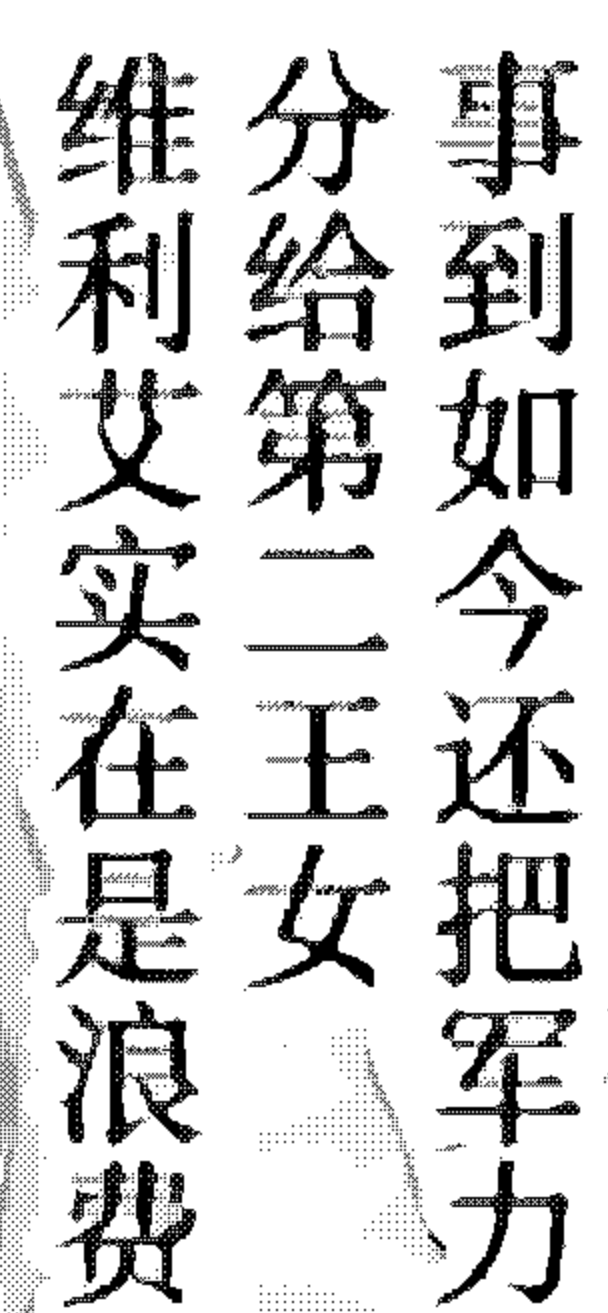 事到如今还把军力
分给第二王女
维利艾实在是浪费